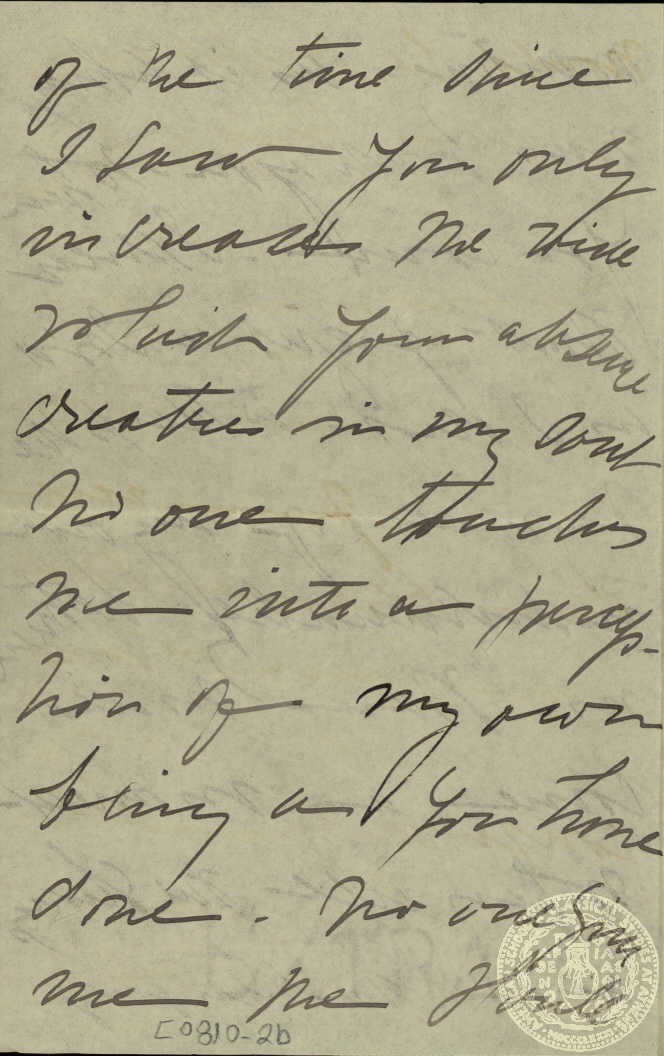 of the time since
I saw you only
increases the void
which your absence
creates in my soul
No one touches
me into a percep-
tion of my own
being as you have
done. No one gives
me the
C0810-2b